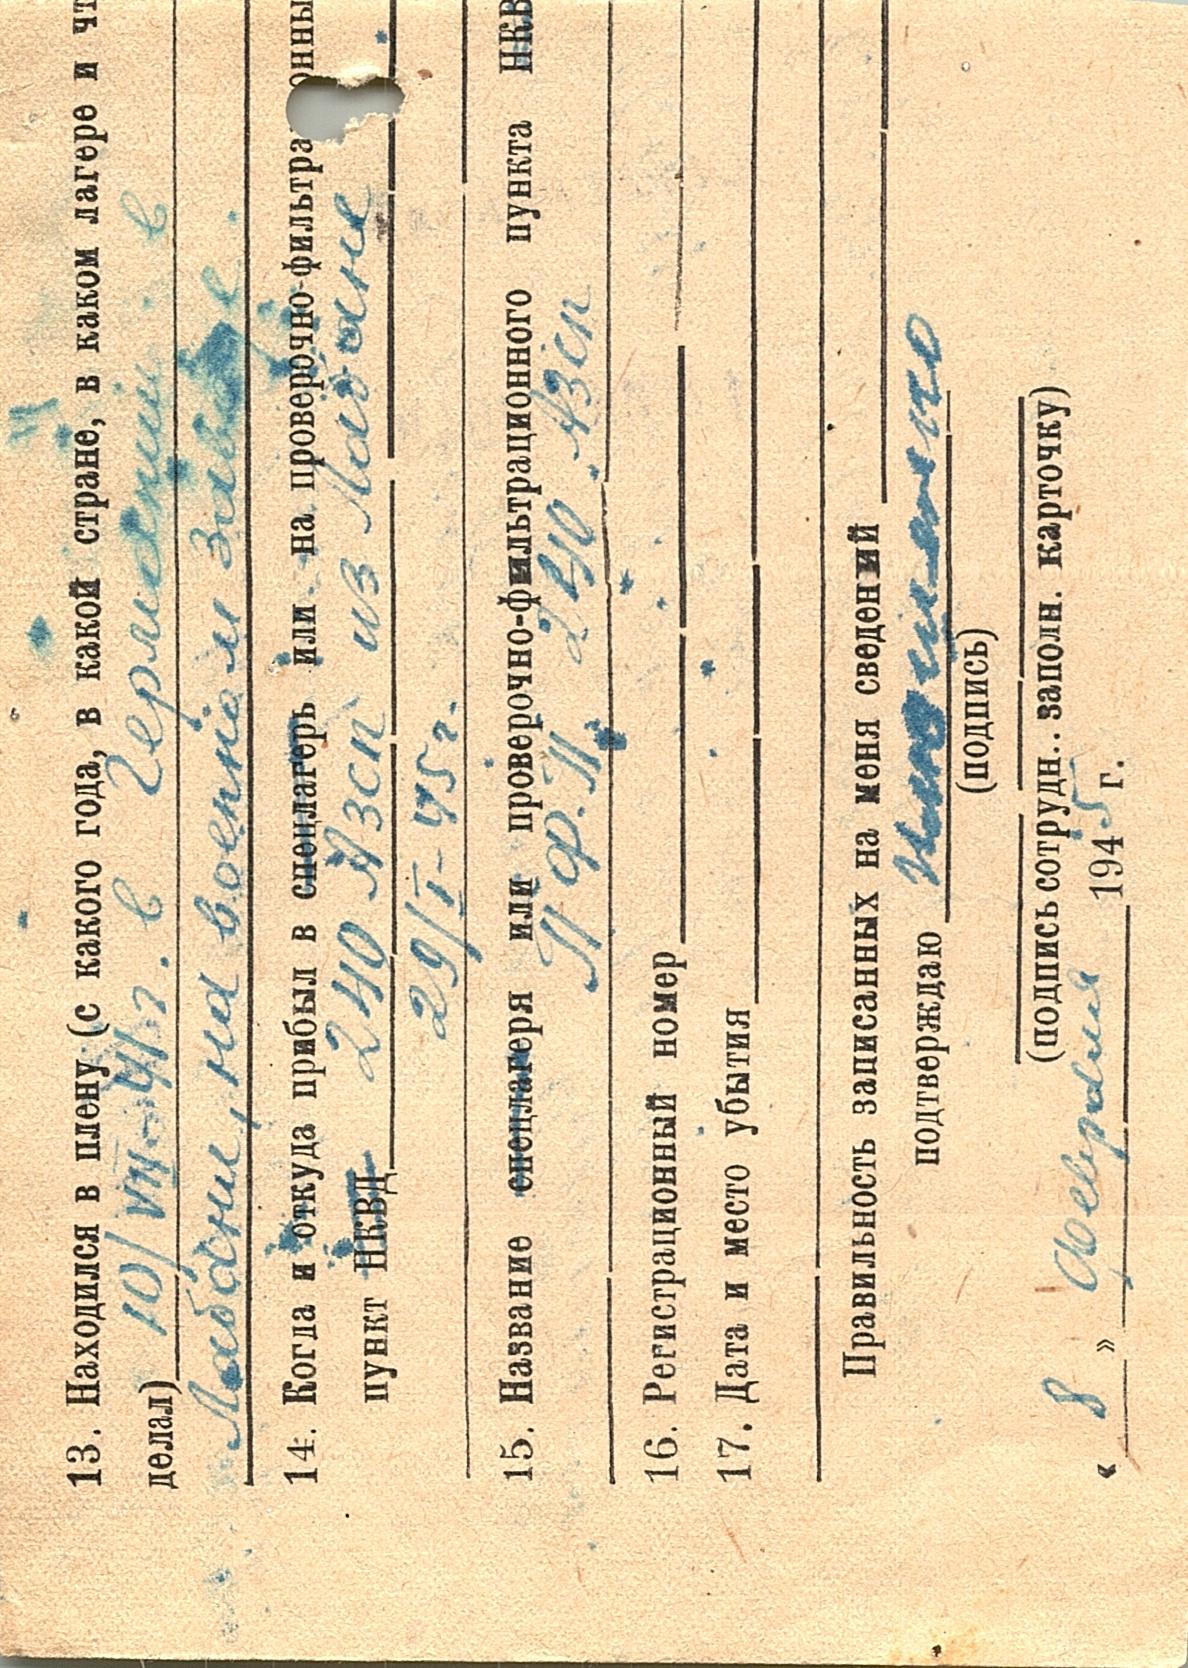 13. Находился в плену (с какого года, в какой стране, в каком лагере и чт
делал) 10/VII-41 г. в Германии в
Лабане, на военном заводе.
14. Когда и откуда прибыл в спецлагерь или на проверочно-фильтра онны
пункт НКВД 240 Азсп из Лабане
29/I-45г.
15. Название спецлагеря или проверочно-фильтрационного пункта НКВ
П.Ф.П. 240 Азсп
16. Регистрационный номер
17. Дата и место убытия
Правильность записанных на меня сведений
подтверждаю
(подпись)
(подпись сотрудн.. заполн. карточку)
« 8 » февраля 1945 г.